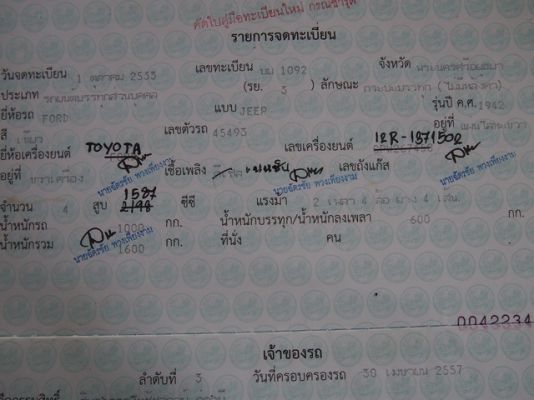 คัดใบคู่มือทะเบียนใหม่ กรณีชำรุด
รายการจดทะเบียน
วันจดทะเบียน 1 ตุลาคม 2533 เลขทะเบียน บม 1092 จังหวัด พระนครศรีอยุธยา
ประเภท รถยนต์บรรทุกส่วนบุคคล (รย. 3) ลักษณะ กระบะบรรทุก (ไม่มีหลังคา)
ยี่ห้อรถ FORD แบบ JEEP รุ่นปี ค.ศ. 1942
สี เขียว เลขตัวรถ 45493 อยู่ที่
ยี่ห้อเครื่องยนต์ TOYOTA เลขเครื่องยนต์ 12R-1371502
อยู่ที่ ขวาเครื่อง เชื้อเพลิง เบนซิน เลขถังแก๊ส
นายฉัตรชัย พวงเพียงงาม นายฉัตรชัย พวงเพียงงาม นายฉัตรชัย พวงเพียงงาม
จำนวน 4 สูบ 2198 1587 ซีซี แรงม้า 2 เพลา 4 ล้อ ยาง 4 เส้น
น้ำหนักรถ 1000 กก. น้ำหนักบรรทุก/น้ำหนักลงเพลา 600 กก.
น้ำหนักรวม 1600 กก. ที่นั่ง คน
นายฉัตรชัย พวงเพียงงาม
0042234
เจ้าของรถ
ลำดับที่ 3 วันที่ครอบครองรถ 30 เมษายน 2557